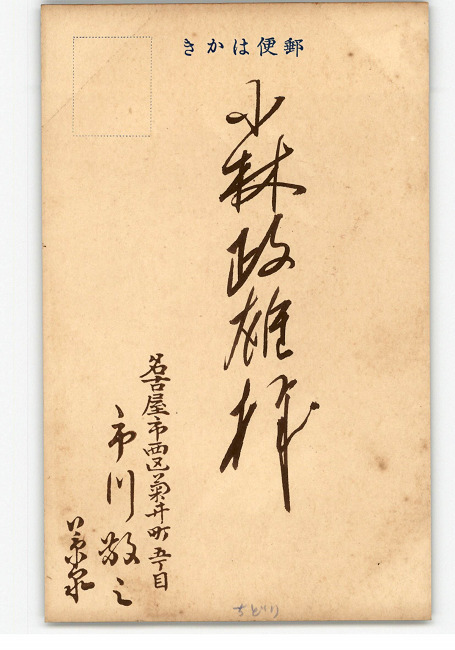 郵便はかき
小林政雄様
名古屋市西区菊井町五丁目
市川敬之
ちどり